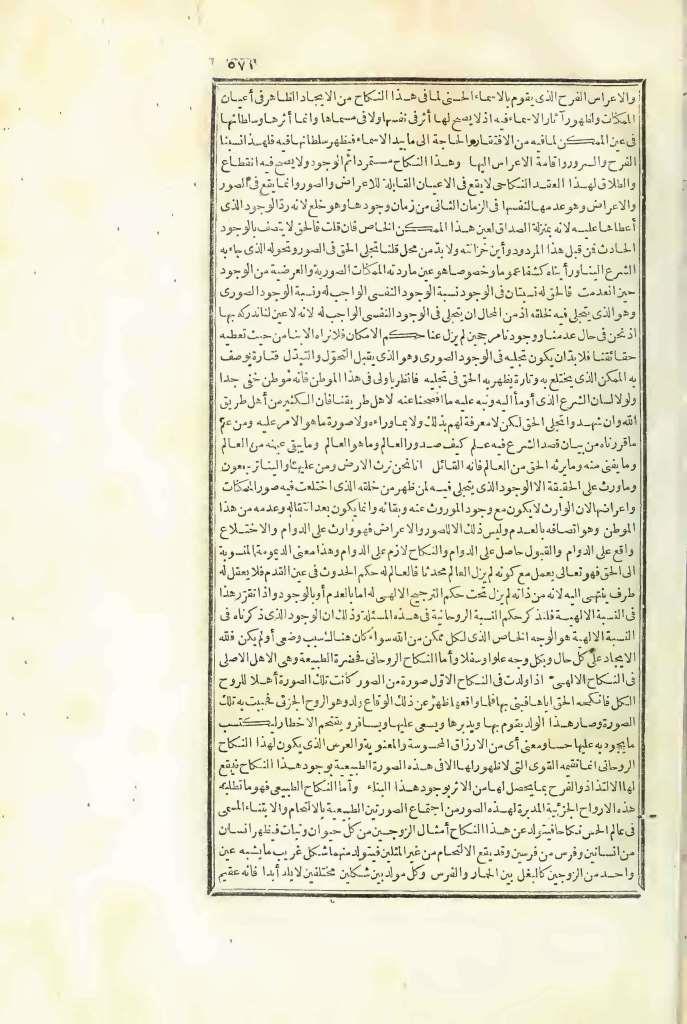 ٥٧١
والاعراس الفرح الذى يقوم بالاسماء الحسنى لما فى هذا النكاح من الايجاد الظاهر فى أعيان
الممكنات ولظهور آثار الاسماء فيه اذ لا يصح لها أثر فى نفسها ولا فى مسماها وانما أثرها وسلطانها
فى عين الممكن لما فيه من الافتقار والحاجة الى ما بيد الاسماء فيظهر سلطانها فيه فلهذا نسبنا
الفرح والسرور واقامة الاعراس اليها وهذا النكاح مستمر دائم الوجود ولا يصح فيه انقطاع
والطلاق لهذا العقد النكاحى لا يقع فى الاعيان القابلة للاعراض والصور وانما يقع فى الصور
والاعراض وهو عدمها لنفسها فى الزمان الثانى من زمان وجودها وهو خلع لانه ردّ الوجود الذى
أعطاها عليه لانه بمنزلة الصداق لعين هذا الممكن الخاص فان قلت فالحق لا يتصف بالوجود
الحادث فمن قبل هذا المردود وأين خزانته ولا بدّ من محل قلنا تجلى الحق فى الصور وتحوله الذى جاء به
الشرع الينا ورأيناه كشفا عموما وخصوصا هو عين ما ردته الممكنات الصورية والعرضية من الوجود
حين انعدمت فالحق له نسبتان فى الوجود نسبة الوجود النفسى الواجب له ونسبة الوجود الصورى
وهو الذى يتجلى فيه لخلقه اذ من المحال ان يتجلى فى الوجود النفسى الواجب له لانه لا عين لنا ندركه بها
اذ نحن فى حال عدمنا ووجودنا مرجحين لم يزل عنا حكم الامكان فلا نراه الا بنا من حيث تعطيه
حقائقنا فلا بدّ ان يكون تجليه فى الوجود الصورى وهو الذى يقبل التحوّل والتبدّل فتارة يوصف
به الممكن الذى يختلع به وتارة يظهر به الحق فى تجليه فانظر يا ولى فى هذا الموطن فانه موطن خفى جدا
ولولا لسان الشرع الذى أومأ اليه ونبه عليه ما أفصحنا عنه لاهل طريقنا فان الكثير من أهل طريق
الله وان شهدوا تجلى الحق لكن لا معرفة لهم بذلك ولا بما وراءه ولا صورة ما هو الامر عليه ومن علم
ما قررناه من بيان قصد الشرع فيه علم كيف صدور العالم وما هو العالم وما يبقى عينه من العالم
وما يفنى منه وما يرثه الحق من العالم فانه القائل انا نحن نرث الارض ومن عليها والينا يرجعون
وما ورث على الحقيقة الا الوجود الذى يتجلى فيه لمن ظهر من خلقه الذى اختلعت فيه صور الممكنات
واعراضها لان الوارث لا يكون مع وجود الموروث عنه وبقائه وانما يكون بعد انتقاله وعدمه من هذا
الموطن وهو اتصافه بالعدم وليس ذلك الا للصور والاعراض فهو وارث على الدوام والاختلاع
واقع على الدوام والقبول حاصل على الدوام والنكاح لازم على الدوام وهذا معنى الديمومة المنسوبة
الى الحق فهو تعالى يعمل مع كونه لم يزل العالم محدثا فالعالم له حكم الحدوث فى عين القدم فلا يعقل له
طرف ينتهى اليه لانه من ذاته لم يزل تحت حكم الترجيح الالهى له اما بالعدم أو بالوجود واذ اتقرر هذا
فى النسبة الالهية فلنذكر حكم النسبة الروحانية فى هذه المسئلة وذلك ان الوجود الذى ذكرناه فى
النسبة الالهية هو الوجه الخاص الذى لكل ممكن من الله سواء كان هنالك سبب وضعى أو لم يكن فلله
الايجاد على كلّ حال وبكل وجه علوا وسفلا وأما النكاح الروحانى فحضرة الطبيعة وهى الاهل الاصلى
فى النكاح الالهى اذا ولدت فى النكاح الاوّل صورة من الصور كانت تلك الصورة أهلا للروح
الكل فانكحه الحق اياها فبنى بها فلما واقعها ظهر عن ذلك الوقاع ولد وهو الروح الجزئى فحييت به تلك
الصورة وصار هذا الولد يقوم بها ويدبرها ويسعى عليها ويسافر ويقتحم الاخطار ليكتسب
ما يجود به عليها حسا ومعنى أى من الارزاق المحسوسة والمعنوية والعرس الذى يكون لهذا النكاح
الروحانى انما تقيمه القوى التى لا ظهور لها الا فى هذه الصورة الطبيعية بوجود هذا النكاح فيقع
لها الالتذاذ والفرح بما يحصل لها من الاثر بوجود هذا البناء وأما النكاح الطبيعى فهو ما تطلبه
هذه الارواح الجزئية المدبرة لهذه الصور من اجتماع الصورتين الطبيعية بالالتحام والابتناء المسمى
فى عالم الحس نكاحا فيتولد عن هذا النكاح أمثال الزوجين من كلّ حيوان ونبات فيظهر انسان
من انسانين وفرس من فرسين وقد يقع الالتحام من غير المثلين فيتولد منهما شكل غريب ما يشبه عين
واحد من الزوجين كالبغل بين الحمار والفرس وكل مولد بين شكلين مختلفين لا يلد أبدا فانه عقيم